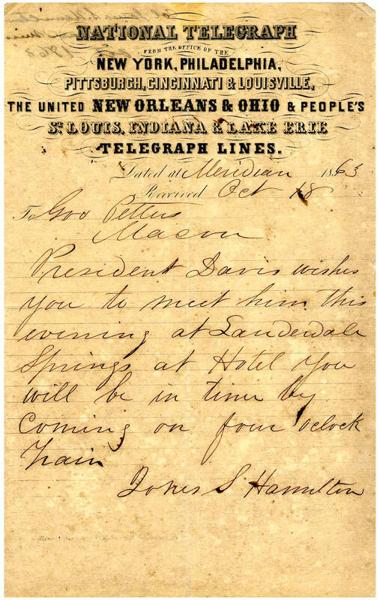 NATIONAL TELEGRAPH
FROM THE OFFICE OF THE
NEW YORK, PHILADELPHIA,
PITTSBURGH, CINCINNATI & LOUISVILLE,
THE UNITED NEW ORLEANS & OHIO & PEOPLE'S
ST. LOUIS, INDIANA & LAKE ERIE
TELEGRAPH LINES.
Dated at Meridian 1863
Received Oct 18
To Gov Pettus
Macon
President Davis wishes
you to meet him this
evening at Lauderdale
Springs at Hotel You
will be in time by
Coming on four oclock
train
Jones S Hamilton